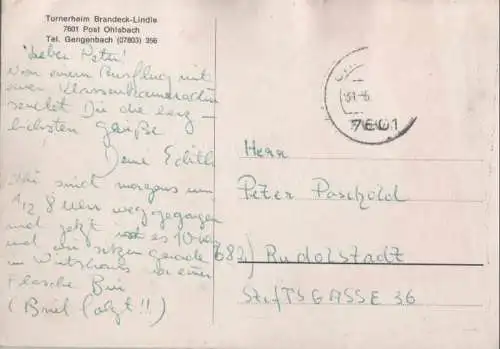 Turnerheim Brandeck-Lindle
7601 Post Ohlsbach
Tel. Gengenbach (07803) 356
Lieber Peter!
Von einem Ausflug mit
einer Klassenkameradin
sendet Dir die herz-
lichsten Grüße
Deine Edith
Wir sind morgens um
1/2 8 Uhr weggegangen
und jetzt ist es 10 Uhr
und wir sitzen gerade
im Wirtshaus bei einer
Flasche Bier
(Brief folgt!!)
7601
Herr
Peter Paschold
682) Rudolstadt
StiftsGASSE 36